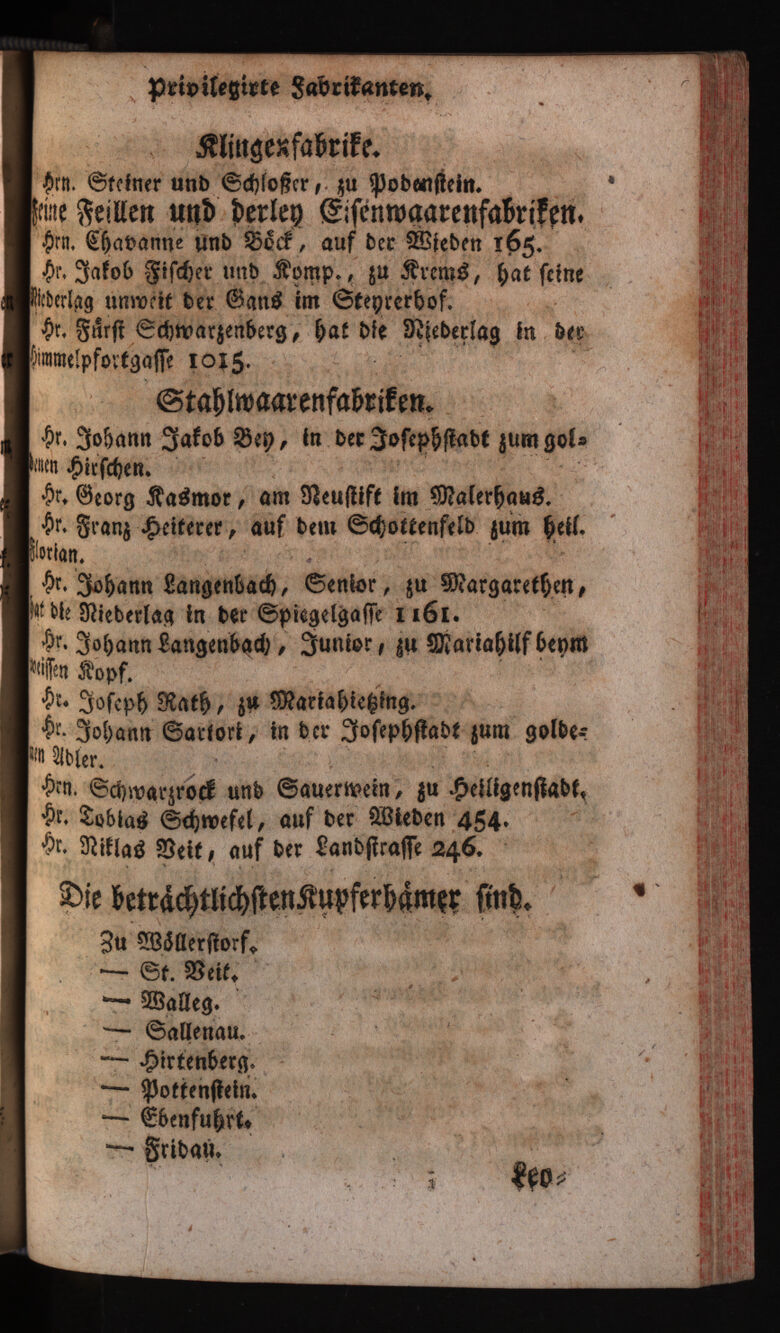 Privilegirte Fabrikanten.
Klingenfabrike.
Hrn. Steiner und Schloßer, zu Podenstein.
Feine Feillen und derley Eisenwaarenfabriken.
Hrn. Chavanne und Böck, auf der Wieden 165.
Hr. Jakob Fischer und Komp., zu Krems, hat seine
Niederlag unweit der Gans im Steyrerhof.
Hr. Fürst Schwarzenberg, hat die Niederlag in der
Himmelpfortgasse 1015.
Stahlwaarenfabriken.
Hr. Johann Jakob Bey, in der Josephstadt zum gol-
denen Hirschen.
Hr. Georg Kasmor, am Neustift im Malerhaus.
Hr. Franz Heiterer, auf dem Schottenfeld zum heil.
Florian.
Hr. Johann Langenbach, Senior, zu Margarethen,
hat die Niederlag in der Spiegelgasse 1161.
Hr. Johann Langenbach, Junior, zu Mariahilf beym
weissen Kopf.
Hr. Joseph Rath, zu Mariahietzing.
Hr. Johann Sartori, in der Josephstadt zum golde-
nen Adler.
Hrn. Schwarzrock und Sauerwein, zu Heiligenstadt.
Hr. Tobias Schwefel, auf der Wieden 454.
Hr. Niklas Veit, auf der Landstrasse 246.
Die beträchtlichsten Kupferhämer sind.
Zu Wöllerstorf.
— St. Veit.
— Walleg.
— Sallenau.
— Hirtenberg.
— Pottenstein.
— Ebenfuhrt.
— Fridau.
Leo-